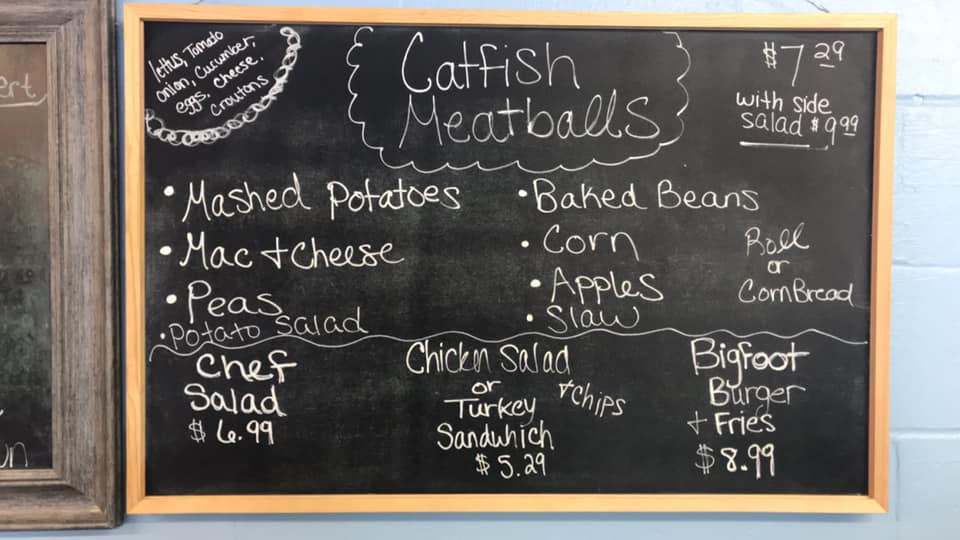 lettus, Tomato
onion, Cucumber,
eggs, cheese,
Croutons
Catfish
Meatballs
$7 29
with side
salad $9 99
• Mashed Potatoes
• Mac + Cheese
• Peas
• Potato Salad
• Baked Beans
• Corn
• Apples
• Slaw
Roll
or
CornBread
Chef
Salad
$6.99
Chicken Salad
or
Turkey
+ Chips
Sandwhich
$5.29
Bigfoot
Burger
+ Fries
$8.99
ert